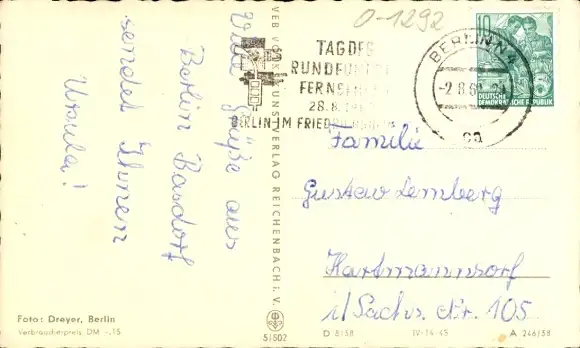 O-1292
Viele Grüße aus
Berlin Basdorf
sendet Ihnen
Ursula!
VEB VOLKSKUNSTVERLAG REICHENBACH i. V.
TAG DES
RUNDFUNK
FERNSEHEN
28.8.
BERLIN IM FRIEDRICHSHAIN
BERLIN N4
-2.8.6
ca
10
DEUTSCHE
DEMOKRATISCHE REPUBLIK
Familie
Gustav Lemberg
Hartmannsdorf
i/Sachs. Nr. 105
Foto: Dreyer, Berlin
Verbraucherpreis DM -.15
51502
D 8/58
IV-14-45
A 246/58